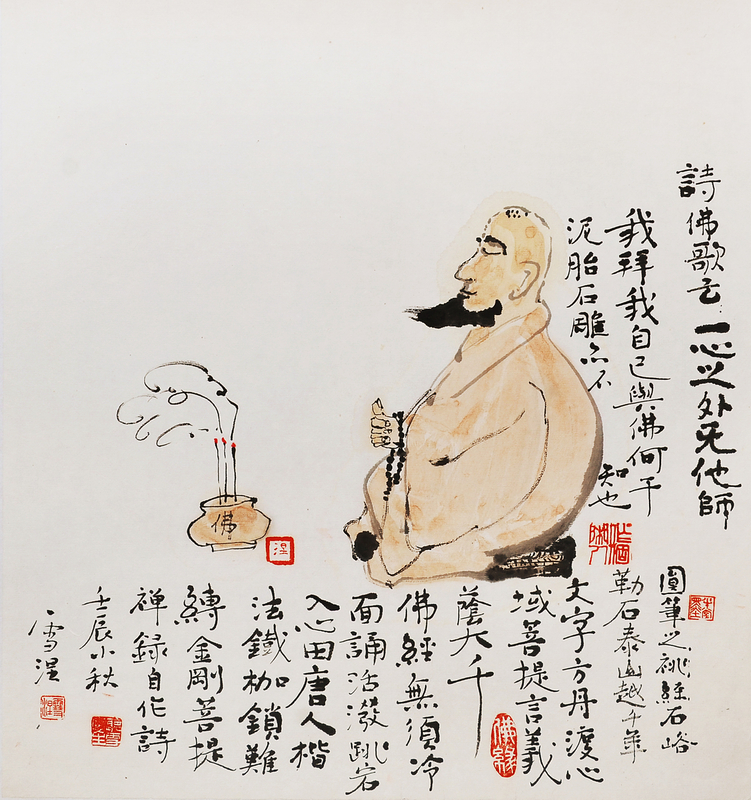 詩佛歌云一心之外无他師
我拜我自己與佛何干
泥胎石雕亦不
知也
圓筆之祧經石峪
勒石泰山越千年
文字方丹渡心
域菩提言義
蔭大千
佛經無須冷
面誦活潑跳宕
入心田唐人楷
法鐵枷鎖難
縛金剛菩提
禅録自作詩
壬辰小秋
雪涅
佛
涅
佛緣